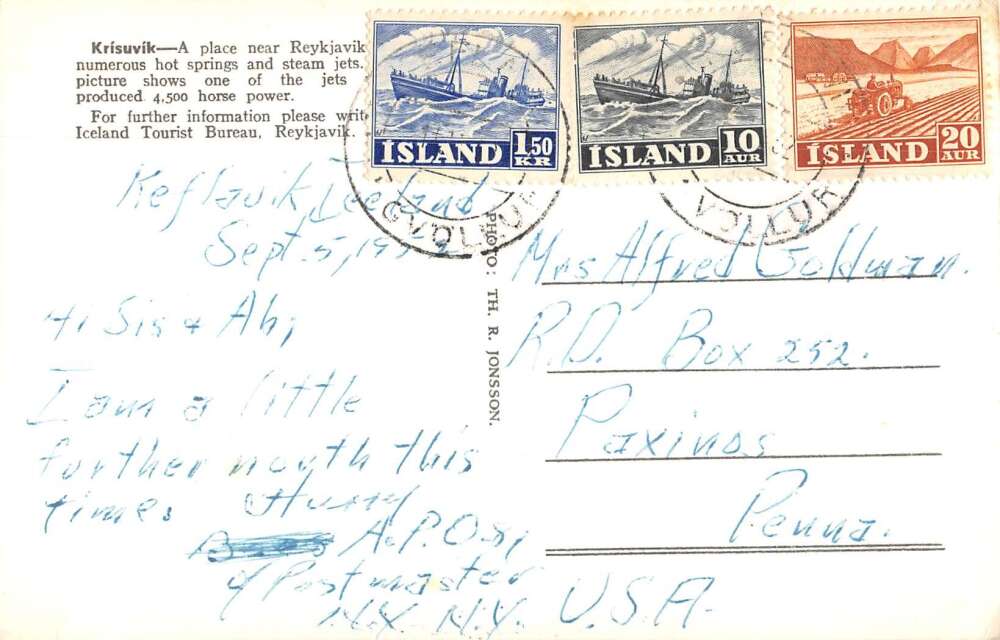 Krísuvík—A place near Reykjavik
numerous hot springs and steam jets.
picture shows one of the jets
produced 4,500 horse power.
For further information please writ
Iceland Tourist Bureau, Reykjavik.
1,50 KR
ÍSLAND
10 AUR
ÍSLAND
20 AUR
ÍSLAND
VÖLLUR
PHOTO: TH. R. JONSSON.
Keflavik, Iceland
Sept. 5, 195
Hi Sis & Ah,
I am a little
further north this
time.
A.P.O.
c/o Postmaster
N.Y. N.Y.
Mrs Alfred Goldman.
R.D. Box 252.
Paxinos
Penna.
U.S.A.